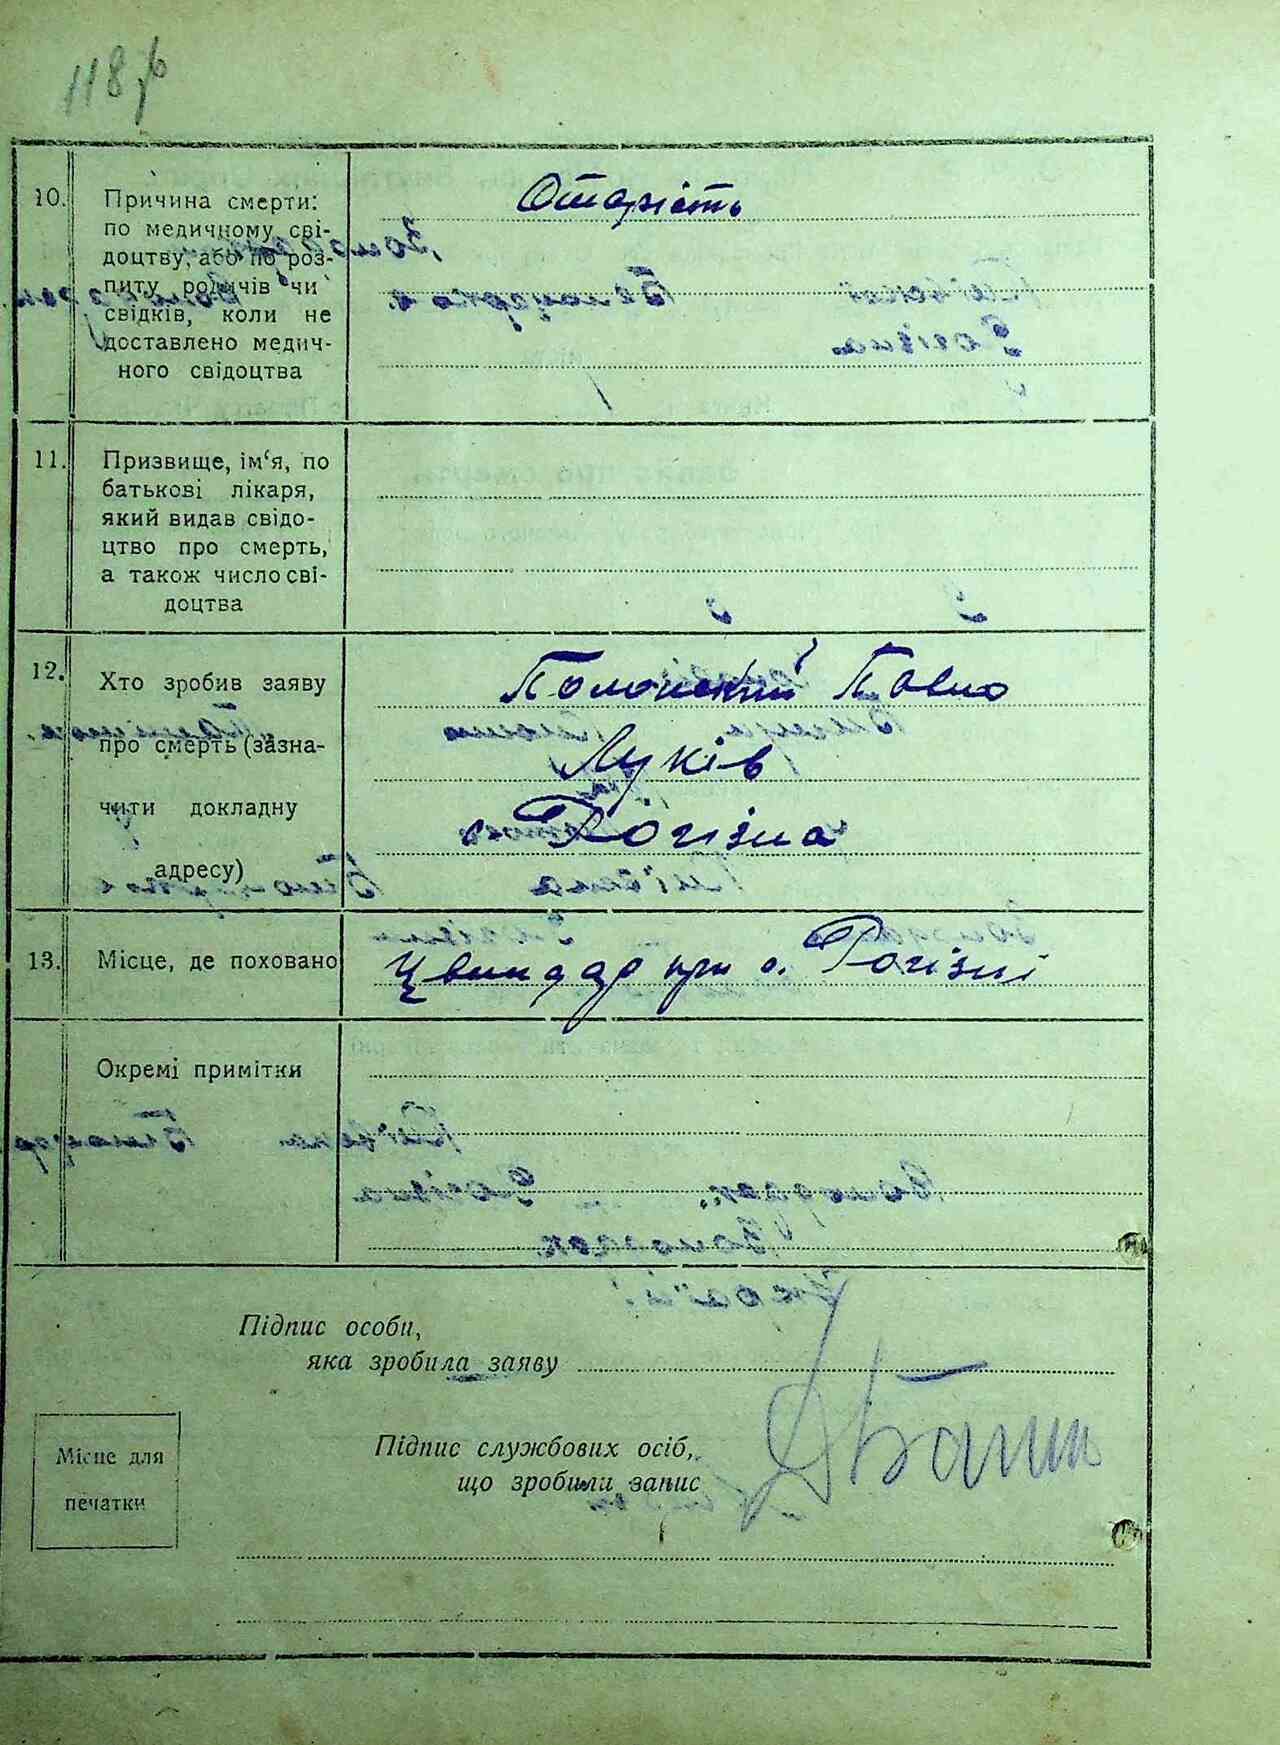 118
10. Причина смерти:
по медичному сві-
доцтву, або по роз-
питу родичів чи
свідків, коли не
доставлено медич-
ного свідоцтва
Старість
11. Призвище, ім‘я, по
батькові лікаря,
який видав свідо-
цтво про смерть,
а також число сві-
доцтва
12. Хто зробив заяву
про смерть (зазна-
чити докладну
адресу)
Павло
Луків
с Рогізна
13. Місце, де поховано
при с. Рогізні
Окремі примітки
Підпис особи,
яка зробила заяву
Місце для
печатки
Підпис службових осіб,
що зробили запис